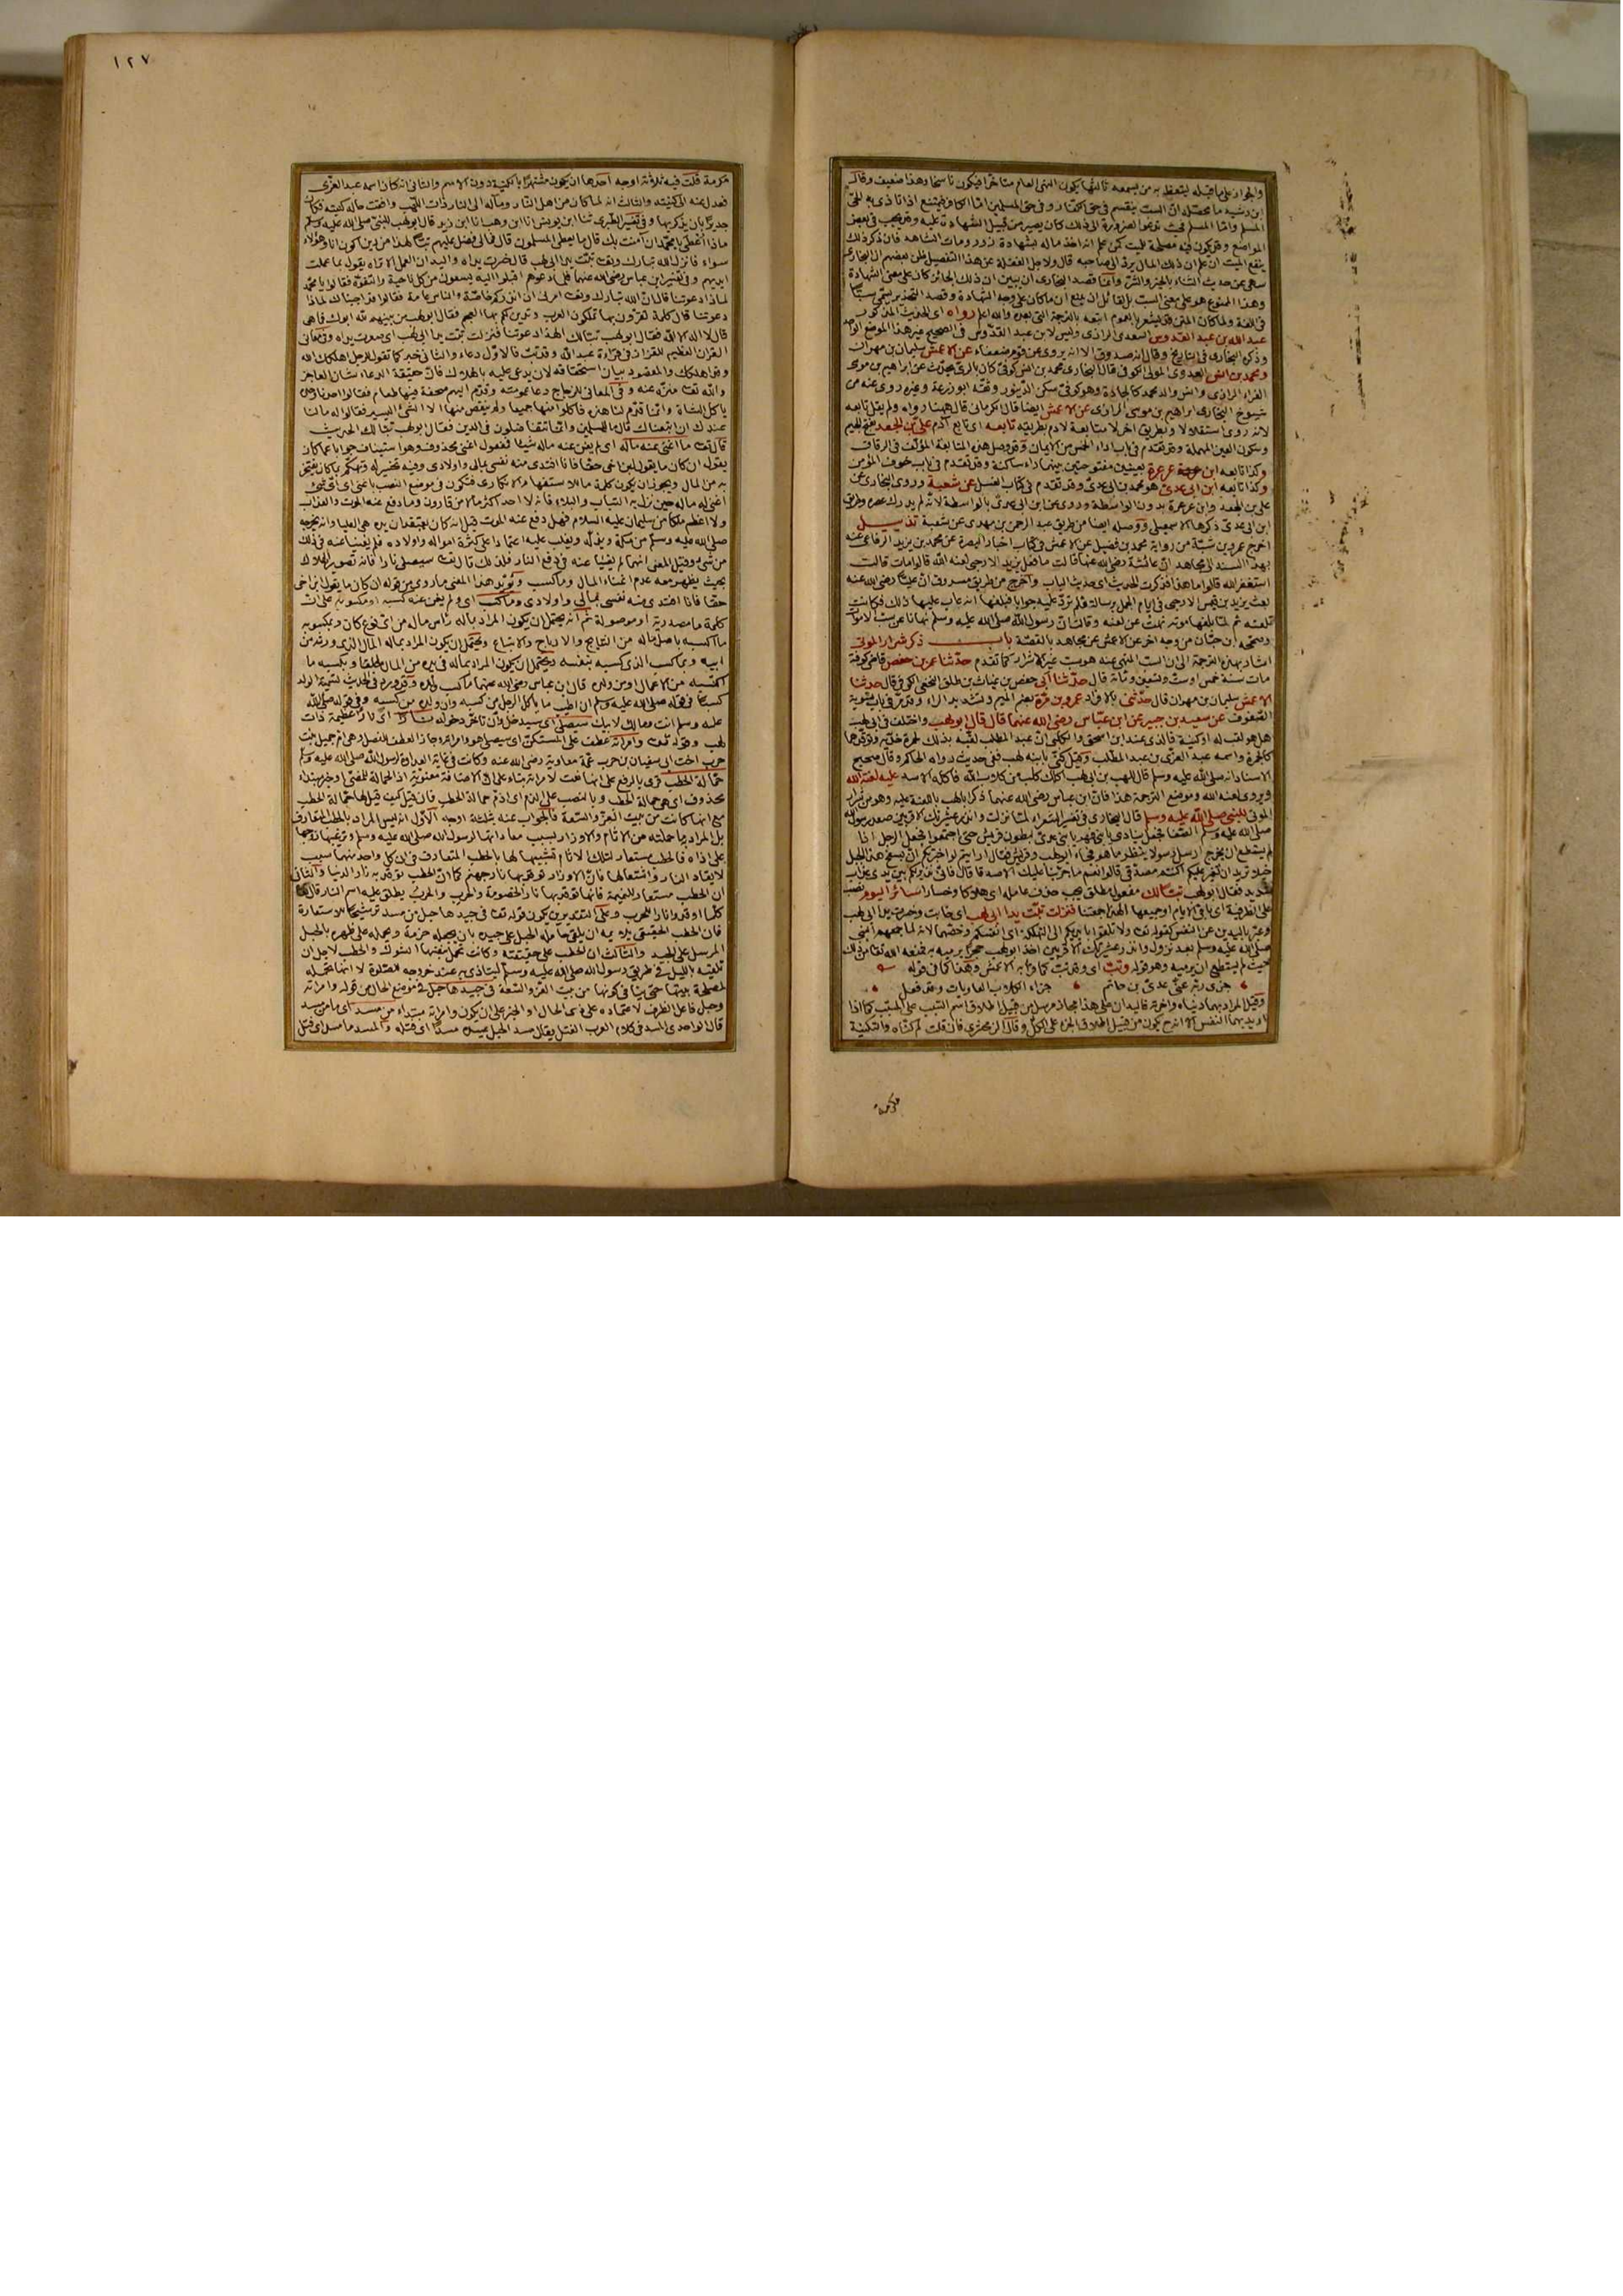 والجواز على ما قبله ليتعظ به من يسمعه ثالثها يكون النهى العام متأخرا فيكون ناسخا وهذا ضعيف وقال
ابن رشيد ما محصله ان السب ينقسم فى حق الكفار وفى حق المسلمين اما الكافر فيمتنع اذا تأذى به الحى
المسلم واما المسلم فحيث تدعو الضرورة الى ذلك كأن يصير من قبيل الشهادة عليه وقد يجب فى بعض
المواضع وقد يكون فيه مصلحة للميت كمن علم انه اخذ ماله بشهادة زور ومات الشاهد فان ذكر ذلك
ينفع الميت ان علم ان ذلك المال يرد الى صاحبه قال ولاجل الغفلة عن هذا التفصيل ظن بعضهم ان البخارى
سهى عن حديث الثناء بالخير والشر وانما قصد البخارى ان يبين ان ذلك الجائز كان على معنى الشهادة
وهذا الممنوع هو على معنى السب
فى اللغة ولما كان المتن قد يشعر بالعموم اتبعه بالترجمة التى بعده والله اعلم رواه اى الحديث المذكور
عبد الله بن عبد القدوس السعدى الرازى وليس لابن عبد القدوس فى الصحيح غير هذا الموضع الواحد
وذكره البخارى فى التاريخ وقال انه صدوق الا انه يروى عن قوم ضعفاء عن الاعمش سليمان بن مهران
ومحمد بن انس العدوى المولى الكوفى قال البخارى محمد بن انس كوفى كان بالرى يحدث عن ابراهيم بن موسى
الفراء الرازى وانس والد محمد كالجادة وهو كوفى سكن الدينور وثقه ابو زرعة وغيره روى عنه من
شيوخ البخارى ابراهيم بن موسى الرازى عن الاعمش ايضا قال الكرمانى قال ههنا رواه ولم يقل تابعه
لانه روى استقلالا وبطريق اخر لا متابعة لادم بطريقه تابعه اى تابع آدم على بن الجعد بفتح الجيم
وسكون العين المهملة وقد تقدم فى باب اداء الخمس من الايمان وقد وصل هذه المتابعة المؤلف فى الرقاق
وكذا تابعه ابن عرعرة بعينين مفتوحتين بينهما راء ساكنة وقد تقدم فى باب خوف المؤمن
وكذا تابعه ابن ابى عدى هو محمد بن ابى عدى وقد تقدم فى كتاب الغسل عن شعبة وروى البخارى عن
على بن الجعد وابن عرعرة بدون الواسطة وروى عن ابن ابى عدى بالواسطة لانه لم يدرك عصره وطريق
ابن ابى عدى ذكرها الاسمعيلى ووصله ايضا من طريق عبد الرحمن بن مهدى عن شعبة تذييل
اخرج عمر بن شبة من رواية محمد بن فضيل عن الاعمش فى كتاب اخبار البصرة عن محمد بن يزيد الرفاعى عنه
بهذا السند الى مجاهد ان عائشة رضى الله عنها قالت ما فعل يزيد الارحبى لعنه الله قالوا مات قالت
استغفر الله قالوا ما هذا فذكرت الحديث اى حديث الباب واخرج من طريق مسروق ان عليا رضى الله عنه
بعث يزيد بن قيس الارحبى فى ايام الجمل برسالة فلم ترد عليه جوابا فبلغها انه عاب عليها ذلك فكانت
تلعنه ثم لما بلغها موته نهت عن لعنه وقالت ان رسول الله صلى الله عليه وسلم نهانا عن سب الاموات
وصححه ابن حبان من وجه اخر عن الاعمش عن مجاهد بالقصة باب ذكر شرار الموتى
اشار بهذه الترجمة الى ان السب المنهى عنه هو سب غير الاشرار كما تقدم حدثنا عمر بن حفص قاضى كوفة
مات سنة خمس او ست وتسعين ومائة قال حدثنا ابى حفص بن غياث بن طلق النخعى الكوفى قال حدثنا
الاعمش سليمان بن مهران قال حدثنى بالافراد عمرو بن مرة بضم الميم وتشديد الراء وقد مر فى باب تسوية
الصفوف عن سعيد بن جبير عن ابن عباس رضى الله عنهما قال قال ابو لهب واختلف فى ابى لهب
هل هو لقب له او كنية فالذى عند ابن اسحق والكلبى ان عبد المطلب لقبه بذلك لحمرة خده وتوقدهما
كالجمرة واسمه عبد العزى بن عبد المطلب وقيل كنى بابنه لهب ففى حديث رواه الحاكم وقال صحيح
الاسناد انه صلى الله عليه وسلم قال للهب بن ابى لهب اكلك كلب من كلاب الله فاكله الاسد عليه لعنة الله
ويروى لعنه الله وموضع الترجمة هذا فان ابن عباس رضى الله عنهما ذكر ابا لهب باللعنة عليه وهو من شرار
الموتى للنبى صلى الله عليه وسلم قال البخارى فى تفسير الشعراء لما نزلت وانذر عشيرتك الاقربين صعد رسول الله
صلى الله عليه وسلم الصفا فجعل ينادى يا بنى فهر يا بنى عدى لبطون قريش حتى اجتمعوا فجعل الرجل اذا
لم يستطع ان يخرج ارسل رسولا لينظر ما هو فجاء ابو لهب وقريش فقال ارايتم لو اخبرتكم ان بسفح هذا الجبل
خيلا تريد ان تغير عليكم اكنتم مصدقى قالوا نعم ما جربنا عليك الا صدقا قال فانى نذير لكم بين يدى عذاب
شديد فقال ابو لهب تبا لك مفعول مطلق يجب حذف عامله اى هلاكا وخسارا سائر اليوم نصب
على الظرفية اى باقى الايام او جميعها الهذا جمعتنا فنزلت تبت يدا ابى لهب اى خابت وخسرت يدا ابى لهب
وعبر باليدين عن النفس كقوله تعالى ولا تلقوا بايديكم الى التهلكة اى انفسكم وخصهما لانه لما جمعهم النبى
صلى الله عليه وسلم بعد نزول وانذر عشيرتك الاقربين اخذ ابو لهب حجرا يرميه به فمنعه الله تعالى من ذلك
حيث لم يستطع ان يرميه وهو قوله وتب اى وقد تب كما قرأ به الاعمش وهذا كما فى قوله
جزى ربه عنى عدى بن حاتم جزاء الكلاب العاويات وقد فعل
وقيل المراد بهما دنياه واخرته فاليدان على هذا مجاز مرسل من قبيل اطلاق اسم السبب على المسبب كما اذا
اريد بهما النفس الا انه ح يكون من قبيل اطلاق الجزء على الكل وقال الزمخشرى فان قلت لم كناه والتكنية
مكرمة
١٢٧
مكرمة قلت فيه ثلاثة اوجه احدها ان يكون مشتهرا بالكنية دون الاسم والثانى انه كان اسمه عبد العزى
فعدل عنه الى كنيته والثالث انه لما كان من اهل النار ومآله الى النار ذات اللهب وافقت حاله كنيته فكان
جديرا بان يذكر بها وفى تفسير الطبرى ثنا ابن يونس انا ابن وهب انا ابن زيد قال ابو لهب للنبى صلى الله عليه وسلم
ماذا أعطى يا محمد ان آمنت بك قال ما يعطى المسلمون قال فمالى فضل عليهم تبا لهذا من دين اكون انا وهؤلاء
سواء فانزل الله تبارك وتعالى تبت يدا ابى لهب قال خسرت يداه واليدان العمل الا تراه يقول بما عملت
ايديهم وفى تفسير ابن عباس رضى الله عنهما فلما دعوهم اقبلوا اليه يسعون من كل ناحية فقالوا يا محمد
لماذا دعوتنا قال ان الله تبارك وتعالى امرنى ان انذركم خاصة والناس عامة فقالوا قد اجبناك لماذا
دعوتنا قال كلمة تقرون بها تملكون العرب وتدين لكم بها العجم فقال ابو لهب من بينهم لله ابوك فما هى
قال لا اله الا الله فقال ابو لهب تبا لك الهذا دعوتنا فنزلت تبت يدا ابى لهب اى صغرت يداه وفى معانى
القرآن العظيم للفراء فى قراءة عبد الله وقد تب فالاول دعاء والثانى خبر كما تقول للرجل اهلكك الله
وقد اهلكك والمقصود بيان استحقاقه لان يدعى عليه بالهلاك فان حقيقة الدعاء شان العاجز
والله تعالى منزه عنه وفى المعانى للزجاج دعا عمومته وقدم اليهم صحفة فيها طعام فقالوا احدنا وحده
ياكل الشاة وانما قدم لنا هذه فاكلوا منها جميعا ولم ينقص منها الا الشئ اليسير فقالوا له مالنا
عندك ان اتبعناك قال ما للمسلمين وانما تتفاضلون فى الدين فقال ابو لهب تبا لك الحديث
قال تعالى ما اغنى عنه ماله اى لم يغن عنه ماله شيئا فمفعول اغنى محذوف وهو استيناف جوابا عما كان
يقول ان كان ما يقول ابن اخى حقا فانا افتدى منه نفسى بمالى واولادى وفيه تحسير له وتهكم بما كان يفتخر
به من المال ويجوز ان يكون كلمة ما الاستفهام الانكارى فتكون فى موضع النصب باغنى اى اى شئ
أغنى له ماله حين نزل به التباب والبلاء فانه لا احد اكثر مالا من قارون وما دفع عنه الموت والعذاب
ولا اعظم ملكا من سليمان عليه السلام فهل دفع عنه الموت قيل انه كان يعتقد ان يده هى العليا وانه يخرجه
صلى الله عليه وسلم من مكة ويذله ويغلب عليه اعتمادا على كثرة امواله واولاده فلم يغنيا عنه فى ذلك
من شئ وقيل المعنى انهما لم يغنيا عنه فى دفع النار فلذلك قال تعالى سيصلى نارا فانه تصوير الهلاك
بحيث يظهر معه عدم اغناء المال وما كسب ويؤيد هذا المعنى ما روى من قوله ان كان ما يقول ابن اخى
حقا فانا افتدى منه نفسى بمالى واولادى وما كسب اى ولم يغن عنه كسبه او مكسوبه على ان
كلمة ما مصدرية او موصولة ثم انه يحتمل ان يكون المراد بماله رأس ماله من اى نوع كان وبمكسوبه
ما اكسبه باصل ماله من النتايج والارباح والاتباع ويحتمل ان يكون المراد بماله المال الذى ورثه من
ابيه وبما كسب الذى كسبه بنفسه ويحتمل ان يكون المراد بماله ما فى يده من المال مطلقا وبكسبه ما
اكتسبه من الاعمال او من ولده قال ابن عباس رضى الله عنهما ما كسب ولده وقد ورد فى الحديث تسمية الولد
كسبا فى قوله صلى الله عليه وسلم ان اطيب ما ياكل الرجل من كسبه وان ولده من كسبه وفى قوله صلى الله
عليه وسلم انت ومالك لابيك سيصلى اى سيدخل وان تاخر دخوله نارا اى نارا عظيمة ذات
لهب وقوله تعالى وامراته عطف على المستكن اى سيصلى هو وامراته وجاز العطف للفصل وهى ام جميل بنت
حرب اخت ابى سفيان بن حرب عمة معاوية رضى الله عنه وكانت فى غاية العداوة لرسول الله صلى الله عليه وسلم
حمالة الحطب قرئ بالرفع على انها نعت لامراته بناء على ان الاضافة معنوية اذ الحمالة للمضى او خبر مبتدأ
محذوف اى هى حمالة الحطب وبالنصب على الذم اى اذم حمالة الحطب فان قيل كيف قيل لها حمالة الحطب
مع انها كانت من بيت العز والسعة فالجواب عنه بثلاثة اوجه الاول انه ليس المراد بالحطب المتعارف
بل المراد ما حملته من الآثام والاوزار بسبب معاداتها لرسول الله صلى الله عليه وسلم وترغيبها زوجها
على اذاه فالحطب مستعار لتلك الاثام تشبيها لها بالحطب المتعارف فى ان كل واحد منهما سبب
لايقاد النار واشتعالها فان الاوزار توقد بها نار جهنم كما ان الحطب توقد به نار الدنيا والثانى
ان الحطب مستعار للنميمة فانها توقد بها نار الخصومة والحرب والحرب يطلق عليه اسم النار قال تعالى
كلما اوقدوا نارا للحرب وعلى التقديرين يكون قوله تعالى فى جيدها حبل من مسد ترشيحا للاستعارة
فان الحطب الحقيقى يلايمه ان يلقى حامله الحبل على جيده بان يجعله حزمة ويحمله على ظهره بالحبل
المرسل على الجيد والثالث ان الحطب على حقيقته وكانت تحمل بنفسها الشوك والحطب لاجل ان
تلقيه بالليل فى طريق رسول الله صلى الله عليه وسلم ليتاذى به عند خروجه للصلوة لا انها تحمله
لمصلحة بيتها حتى ينافى كونها من بيت العز والسعة فى جيدها حبل فى موضع الحال من قوله وامراته
وحبل فاعل الظرف لاعتماده على ذى الحال او الخبر على ان يكون وامراته مبتداء من مسد اى مما من مسد
قال الواحدى المسد فى كلام العرب الفتل يقال مسد الحبل يمسده مسدا اى فتله والمسد ما مسد اى فتل